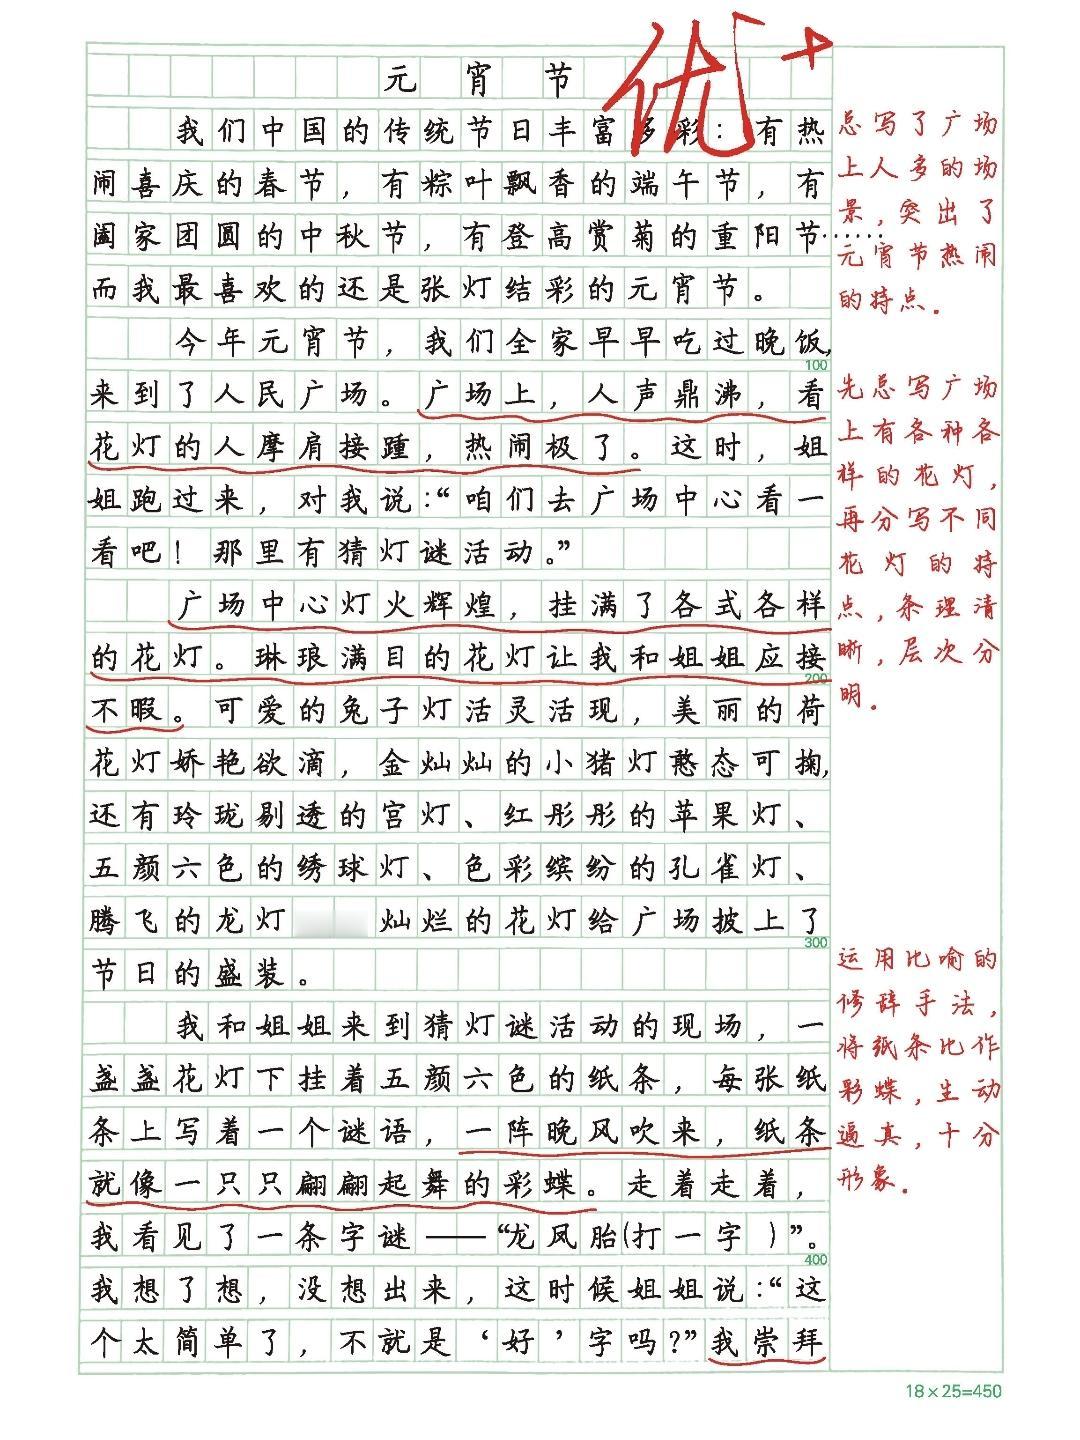 元宵节
优+
我们中国的传统节日丰富多彩：有热
闹喜庆的春节，有粽叶飘香的端午节，有
阖家团圆的中秋节，有登高赏菊的重阳节……
而我最喜欢的还是张灯结彩的元宵节。
今年元宵节，我们全家早早吃过晚饭，
100
来到了人民广场。广场上，人声鼎沸，看
花灯的人摩肩接踵，热闹极了。这时，姐
姐跑过来，对我说：“咱们去广场中心看一
看吧！那里有猜灯谜活动。”
广场中心灯火辉煌，挂满了各式各样
的花灯。琳琅满目的花灯让我和姐姐应接
200
不暇。可爱的兔子灯活灵活现，美丽的荷
花灯娇艳欲滴，金灿灿的小猪灯憨态可掬，
还有玲珑剔透的宫灯、红彤彤的苹果灯、
五颜六色的绣球灯、色彩缤纷的孔雀灯、
腾飞的龙灯 灿烂的花灯给广场披上了
300
节日的盛装。
我和姐姐来到猜灯谜活动的现场，一
盏盏花灯下挂着五颜六色的纸条，每张纸
条上写着一个谜语，一阵晚风吹来，纸条
就像一只只翩翩起舞的彩蝶。走着走着，
我看见了一条字谜——“龙凤胎（打一字）”。
400
我想了想，没想出来，这时候姐姐说：“这
个太简单了，不就是‘好’字吗？”我崇拜
18×25=450
总写了广场
上人多的场
景，突出了
元宵节热闹
的特点．
先总写广场
上有各种各
样的花灯，
再分写不同
花灯的特
点，条理清
晰，层次分
明．
运用比喻的
修辞手法，
将纸条比作
彩蝶，生动
逼真，十分
形象．